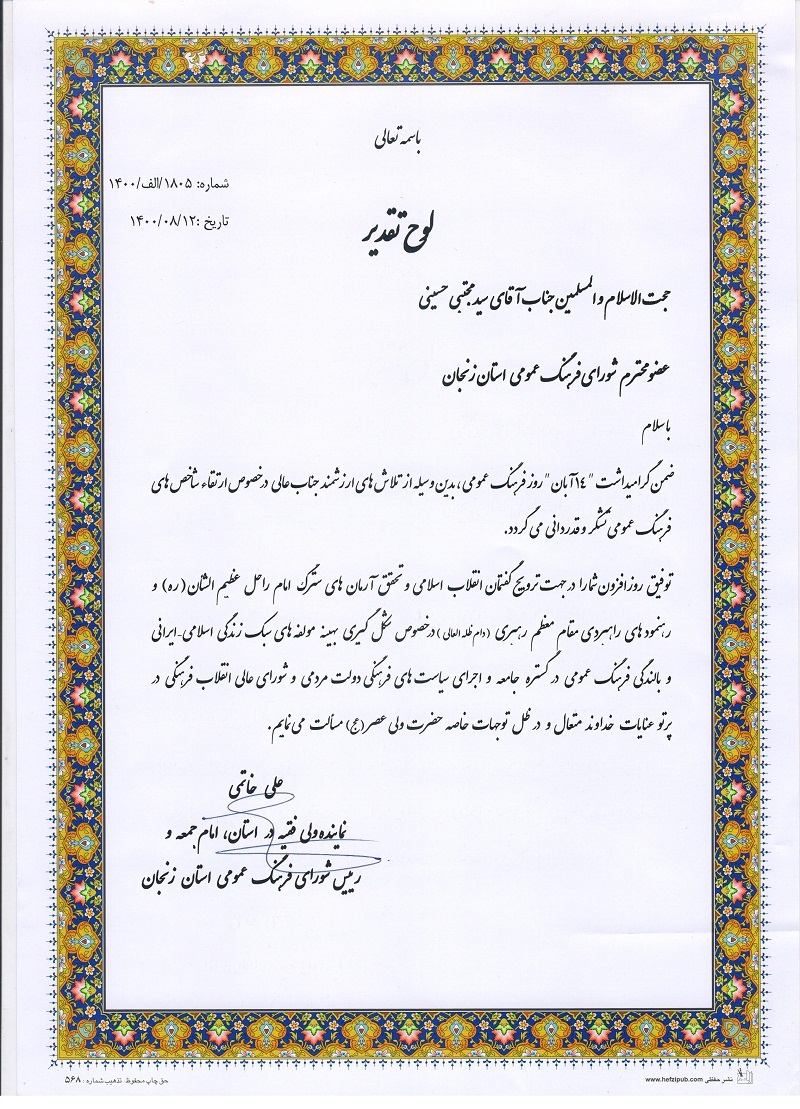 باسمه تعالی
شماره: ۱۸۰۵/الف/۱۴۰۰
تاریخ :۱۴۰۰/۰۸/۱۲
لوح تقدیر
حجت الاسلام والمسلمین جناب آقای سید مجتبی حسینی
عضو محترم شورای فرهنگ عمومی استان زنجان
باسلام
ضمن گرامیداشت "۱۴آبان" روز فرهنگ عمومی، بدین وسیله از تلاش های ارزشمند جناب عالی درخصوص ارتقاء شاخص های
فرهنگ عمومی تشکر و قدردانی می گردد.
توفیق روزافزون شما را در جهت ترویج گفتمان انقلاب اسلامی و تحقق آرمان های سترگ امام راحل عظیم الشأن (ره) و
رهنمودهای راهبردی مقام معظم رهبری (دام ظله العالی) درخصوص شکل گیری بهینه مولفه های سبک زندگی اسلامی-ایرانی
و بالندگی فرهنگ عمومی در گستره جامعه و اجرای سیاست های فرهنگی دولت مردمی و شورای عالی انقلاب فرهنگی در
پرتو عنایات خداوند متعال و در ظل توجهات خاصه حضرت ولی عصر(عج) مسألت می نمایم.
علی خاتمی
نماینده ولی فقیه در استان، امام جمعه و
رییس شورای فرهنگ عمومی استان زنجان
نشر حفظی www.hefzipub.com
حق چاپ محفوظ. تذهیب شماره : ۵۶۸